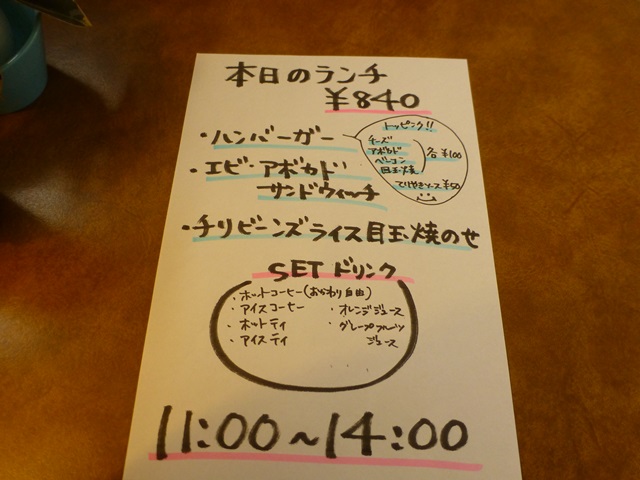 本日のランチ
¥840
・ハンバーガー
トッピング!!
チーズ
アボカド
ベーコン
目玉焼
各¥100
てりやきソース¥50
・エビ・アボカド
サンドウィーチ
・チリビーンズライス目玉焼のせ
SETドリンク
・ホットコーヒー(おかわり自由)
・アイスコーヒー
・ホットティ
・アイスティ
・オレンジジュース
・グレープフルーツ
ジュース
11:00~14:00